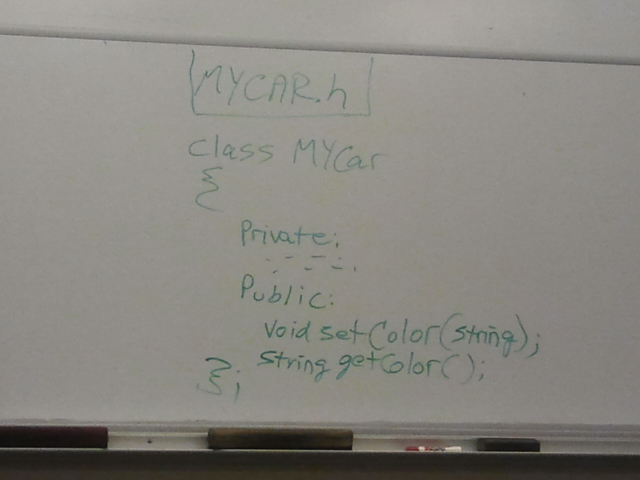 MYCAR.h
class MYCar
{
Private:
Public:
void setColor(string);
string getColor();
};